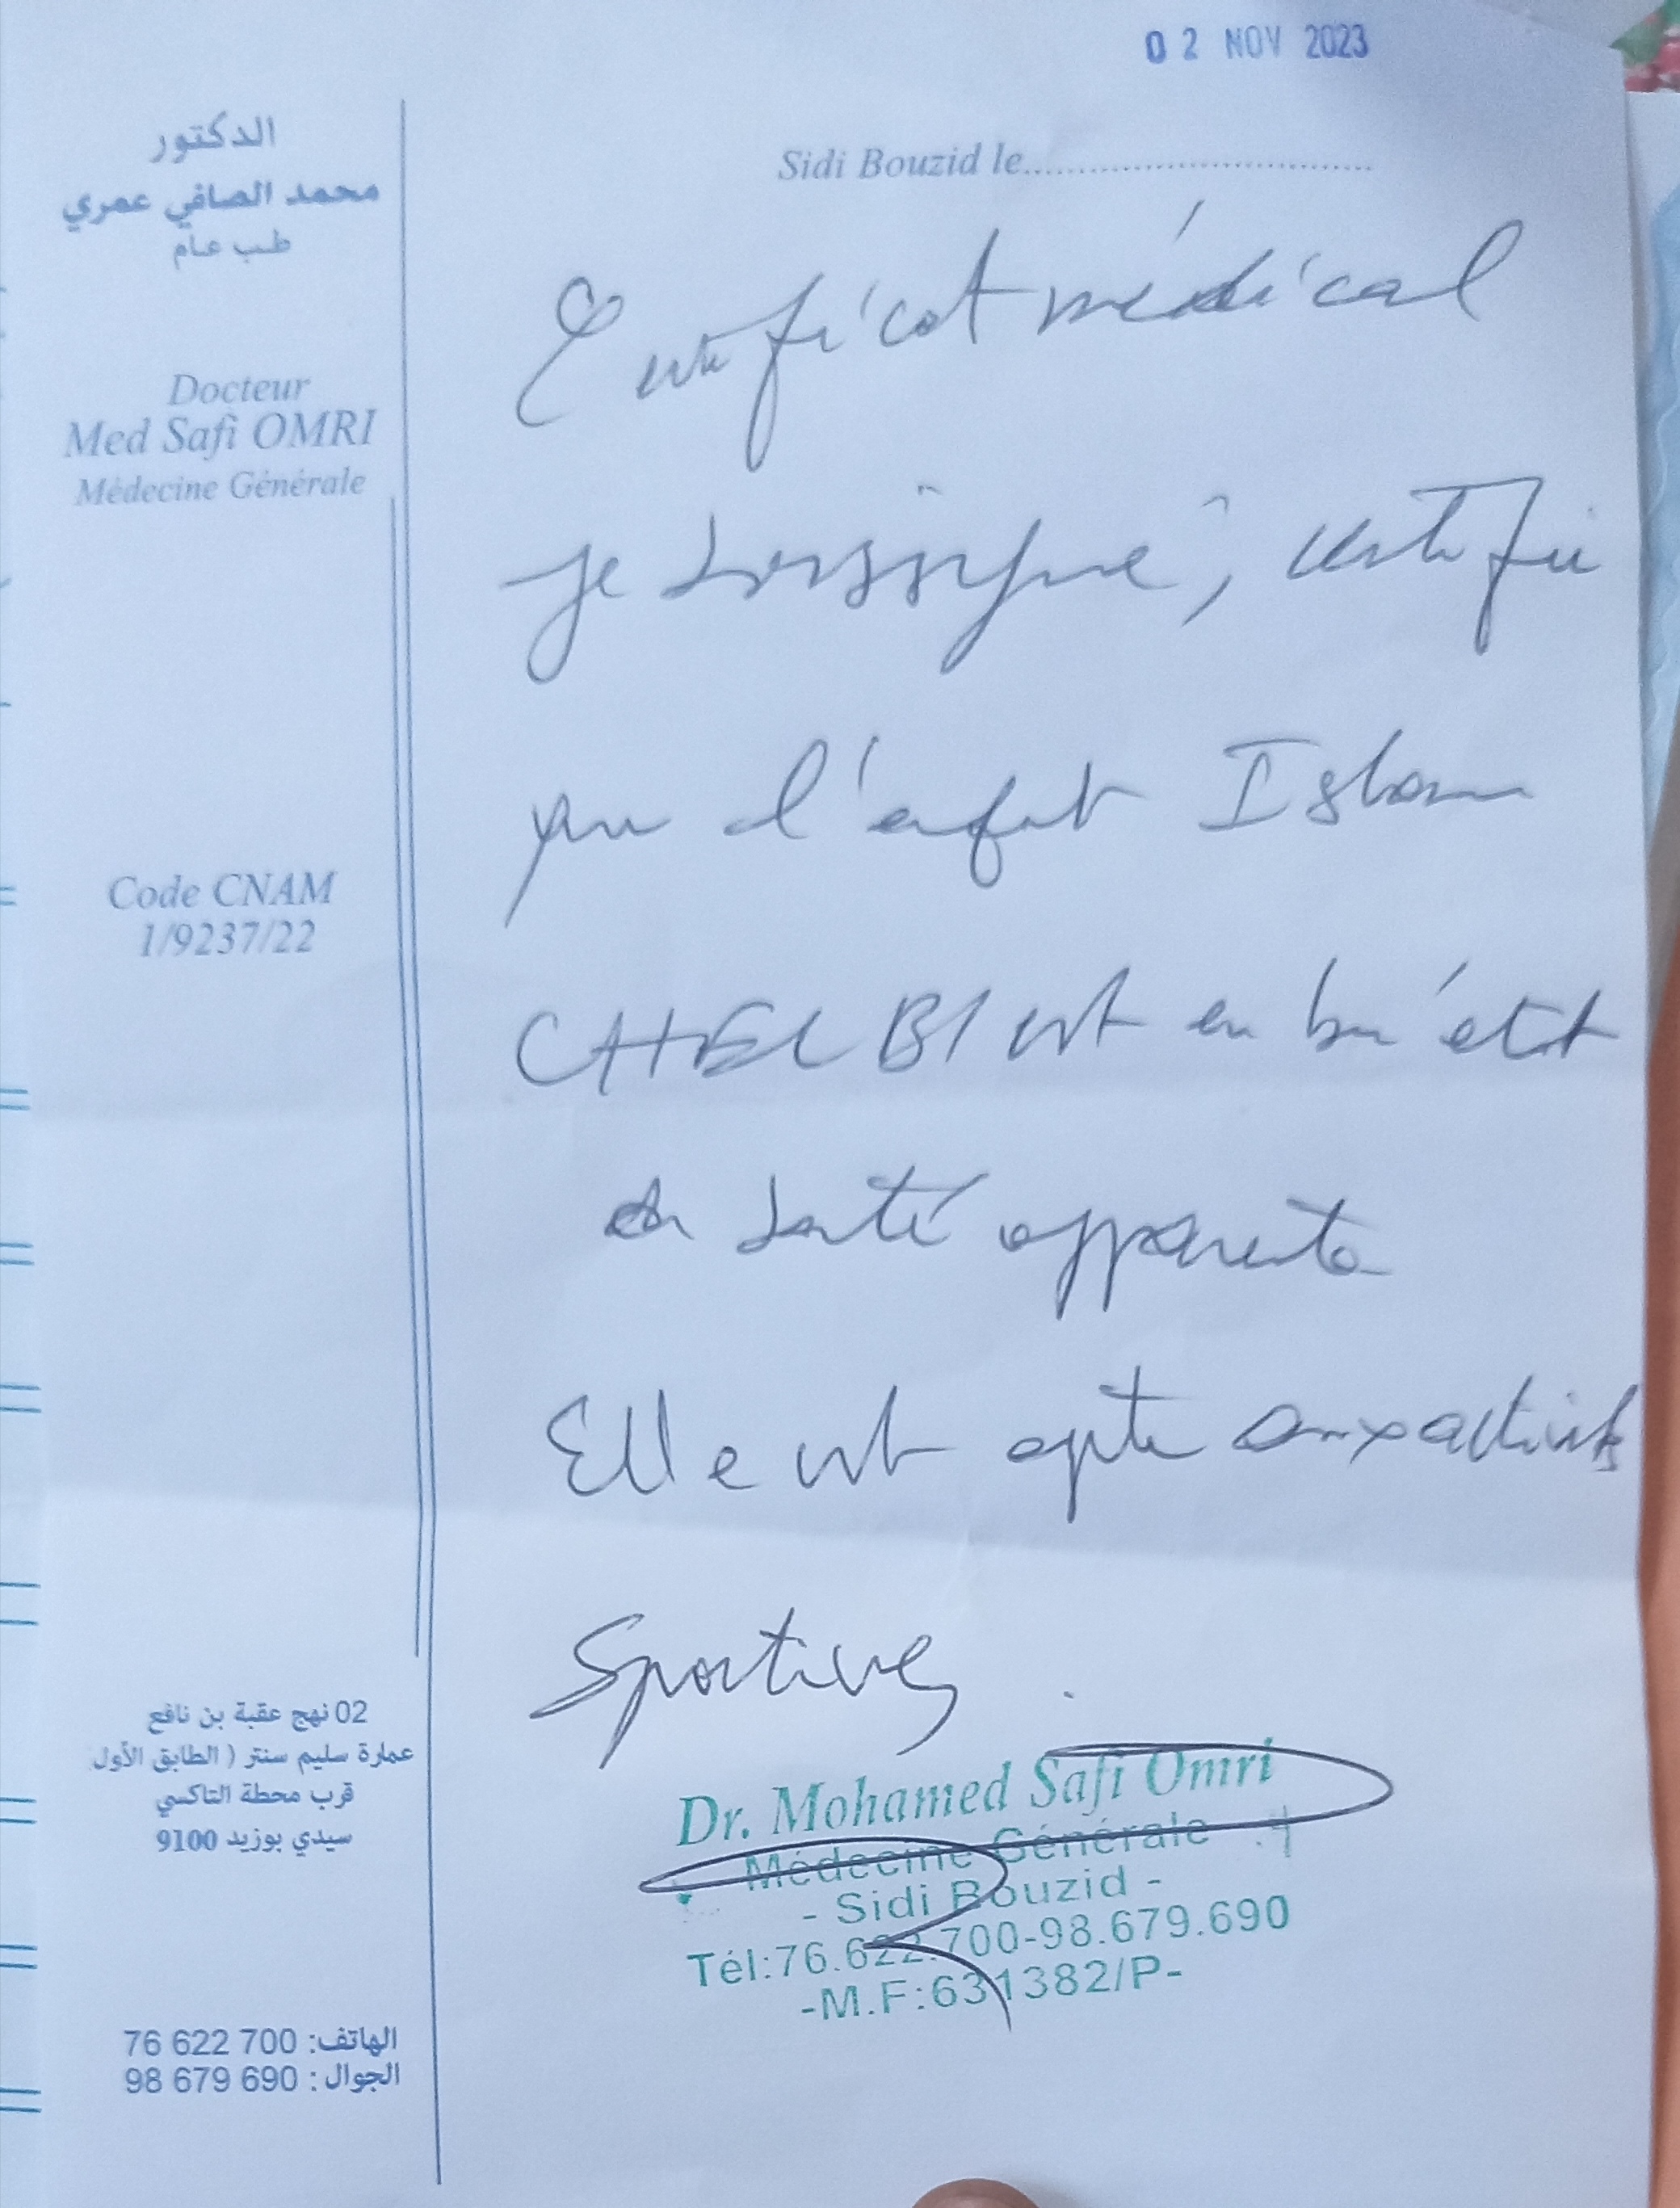 02 NOV 2023
الدكتور
محمد الصافي عمري
طب عام
Docteur
Med Safi OMRI
Médecine Générale
Code CNAM
1/9237/22
02 نهج عقبة بن نافع
عمارة سليم سنتر ( الطابق الأول
قرب محطة التاكسي
سيدي بوزيد 9100
الهاتف: 76 622 700
الجوال : 98 679 690
Sidi Bouzid le
Certificat médical
je soussigné, certifie
que l'enfant Islam
CHELBI est en bon état
de santé apparente
Elle est apte aux activités
Sportives.
Dr. Mohamed Safi Omri
Médecine Générale
- Sidi Bouzid -
Tél:76.622.700-98.679.690
-M.F:631382/P-